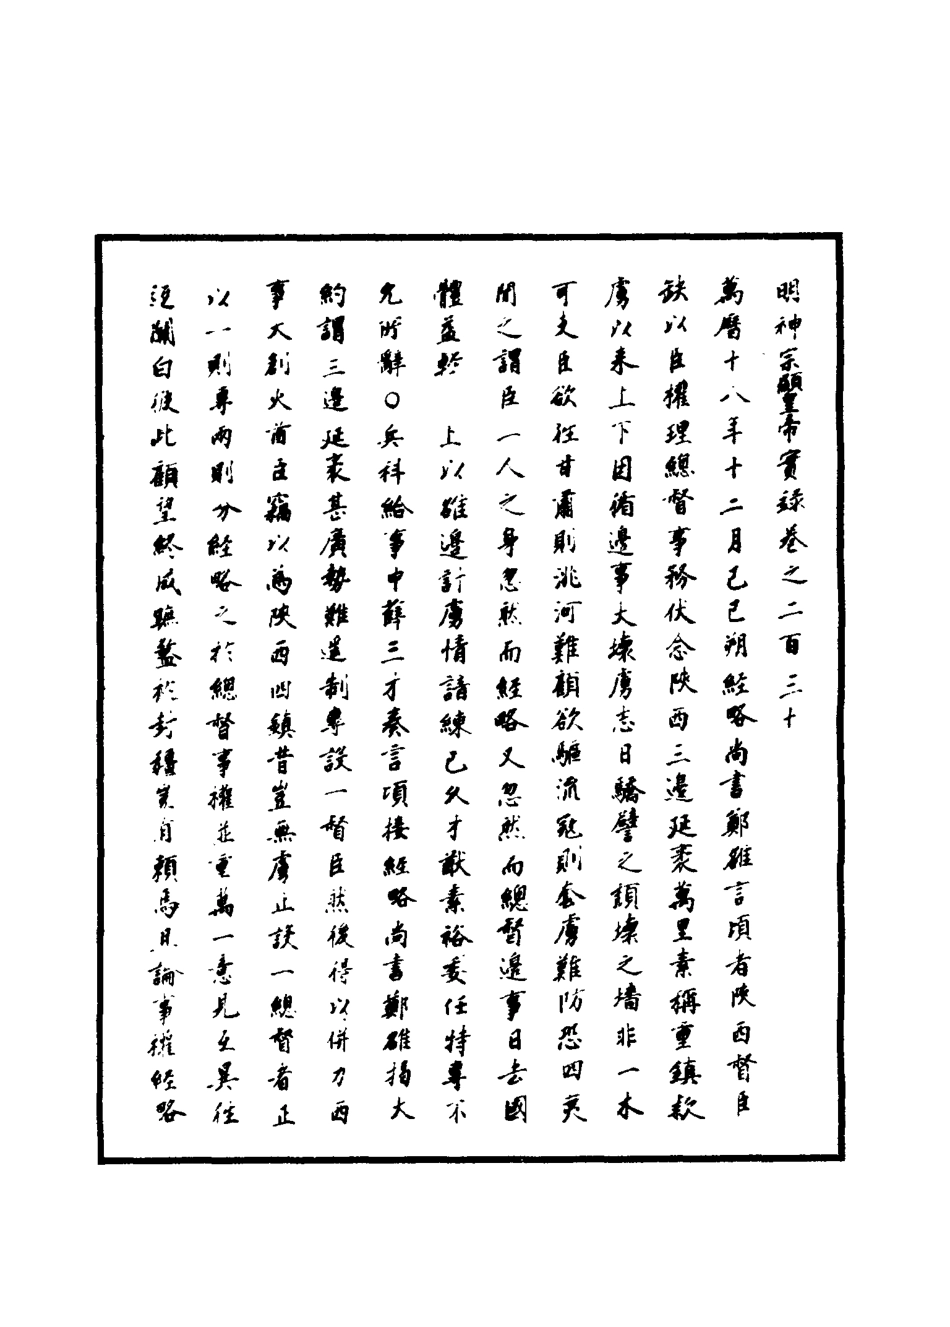 明神宗顯皇帝實錄卷之二百三十
萬曆十八年十二月己巳朔經略尚書鄭雒言頃者陝西督臣
缺以臣擢理總督事務伏念陝西三邊延袤萬里素稱重鎮款
虜以来上下因循邊事大壞虜志日驕譬之頹壞之墻非一木
可支臣欲徃甘肅則洮河難顧欲驅流寇則套虜難防恐四夷
聞之謂臣一人之身忽然而經略又忽然而總督邊事日去國
體益輕　上以雒邊計虜情諳練已久才猷素裕委任特專不
允所辭○兵科給事中薛三才奏言頃接經略尚書鄭雒揭大
約謂三邊延袤甚廣勢難遥制專設一督臣然後得以併力西
事大創火酋臣竊以為陝西四鎮昔豈無虜止設一總督者正
以一則專兩則分經略之於總督事權並重萬一意見互異徃
返關白彼此顧望終成蹠盭於封疆豈有賴焉且論事權經略